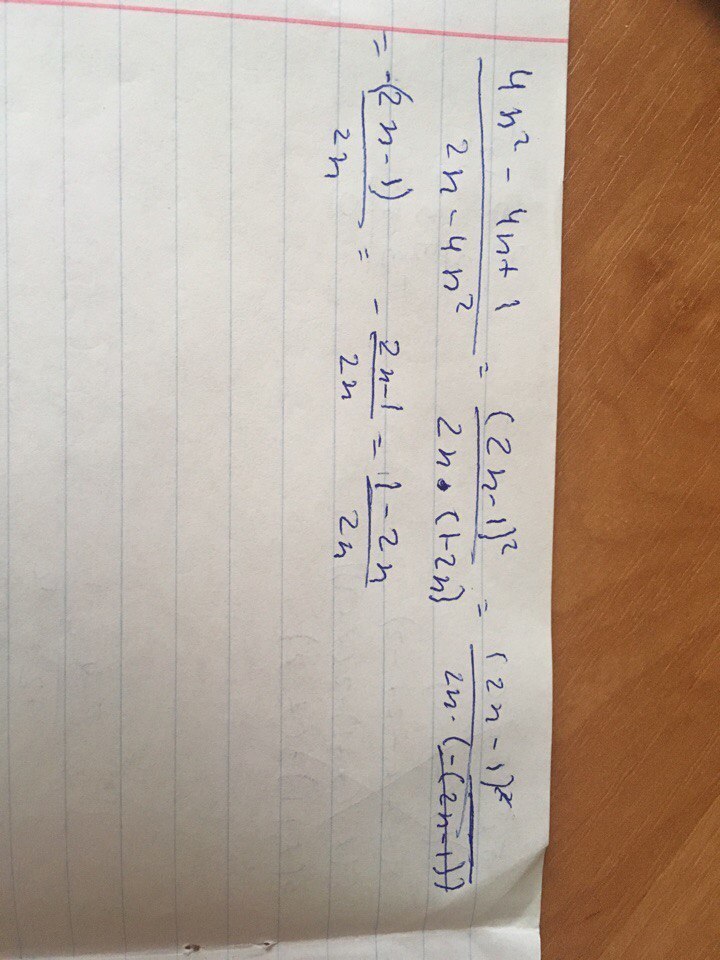 (4n² - 4n + 1)/(2n - 4n²) = (2n-1)²/(2n • (1-2n)) = (2n-1)²/(2n · (-(2n-1)))
= -(2n-1)/2n = - (2n-1)/2n = (1-2n)/2n